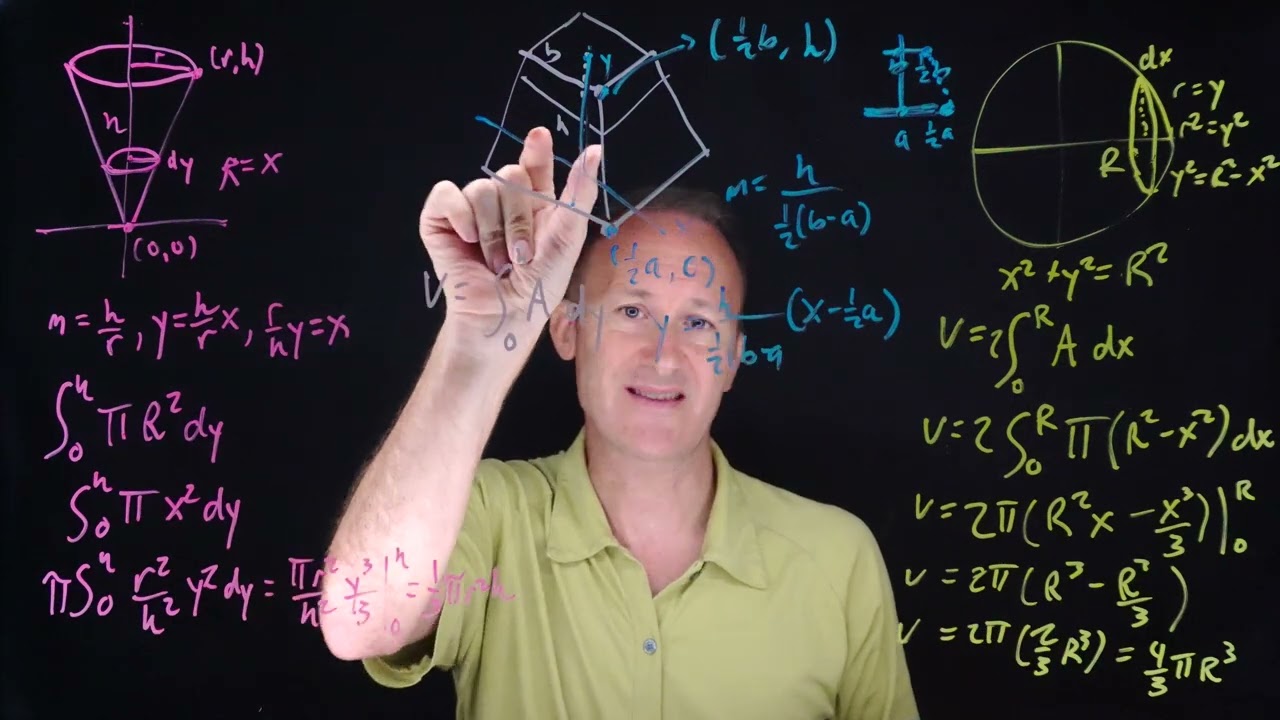 r
(r,h)
h
dy
R = x
(0,0)
m = h/r , y = h/r x , r/h y = x
∫₀ʰ π R² dy
∫₀ʰ π x² dy
π∫₀ʰ r²/h² y² dy = πr²/h² y³/3 |₀ʰ = 1/3 πr²h
b
y
h
(½b, h)
½b
a ½a
m = h / ½(b-a)
(½a, 0)
V = ∫₀ A dy
y = h / ½(b-a (x - ½a)
dx
r = y
r² = y²
R
y² = R² - x²
x² + y² = R²
V = 2∫₀ᴿ A dx
V = 2∫₀ᴿ π(R² - x²) dx
V = 2π(R²x - x³/3)|₀ᴿ
V = 2π(R³ - R³/3)
V = 2π(2/3 R³) = 4/3 πR³